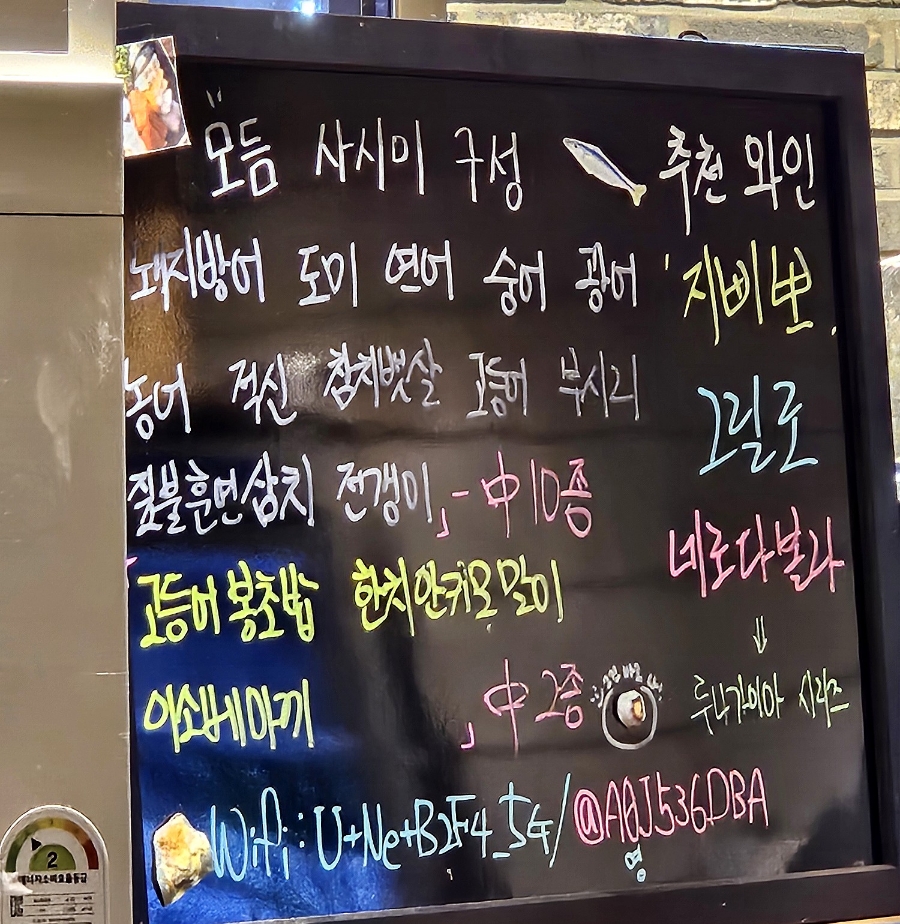 모듬 사시미 구성
추천 와인
돼지방어 도미 연어 숭어 광어
농어 적신 참치뱃살 고등어 부시리
짚불훈연삼치 전갱이 」- 中 10종
고등어 봉초밥 한치안키모말이
이소베마끼 」中 2종
지삐뽀
그릴로
네로다볼라
⇓
루나가이아 시리즈
Wifi : U+Net+B2F4_5G / @A0J536DBA
영
2
에너지소비효율등급